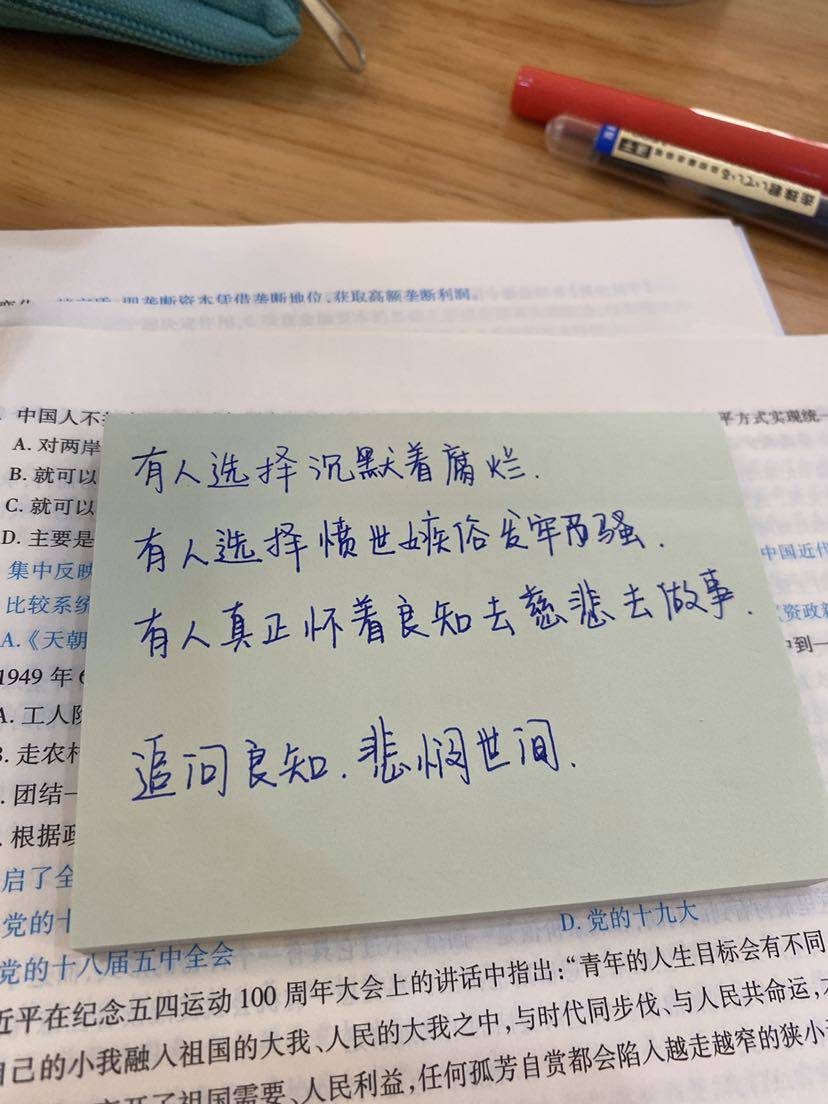 即垄断资本凭借垄断地位,获取高额垄断利润。
中国人不
平方式实现统一
A. 对两岸
B. 就可以
C. 就可以
D. 主要是
集中反映
中国近代
比较系统
资政新
A.《天朝
中到一
1949 年
A. 工人阶
3. 走农村
. 团结一
. 根据
启了全
党的十
D. 党的十九大
党的十八届五中全会
近平在纪念五四运动 100 周年大会上的讲话中指出:“青年的人生目标会有不同
自己的小我融入祖国的大我、人民的大我之中,与时代同步伐、与人民共命运,
离开了祖国需要、人民利益,任何孤芳自赏都会陷入越走越窄的狭小
有人选择沉默着腐烂.
有人选择愤世嫉俗发牢骚.
有人真正怀着良知去慈悲去做事.
追问良知.悲悯世间.